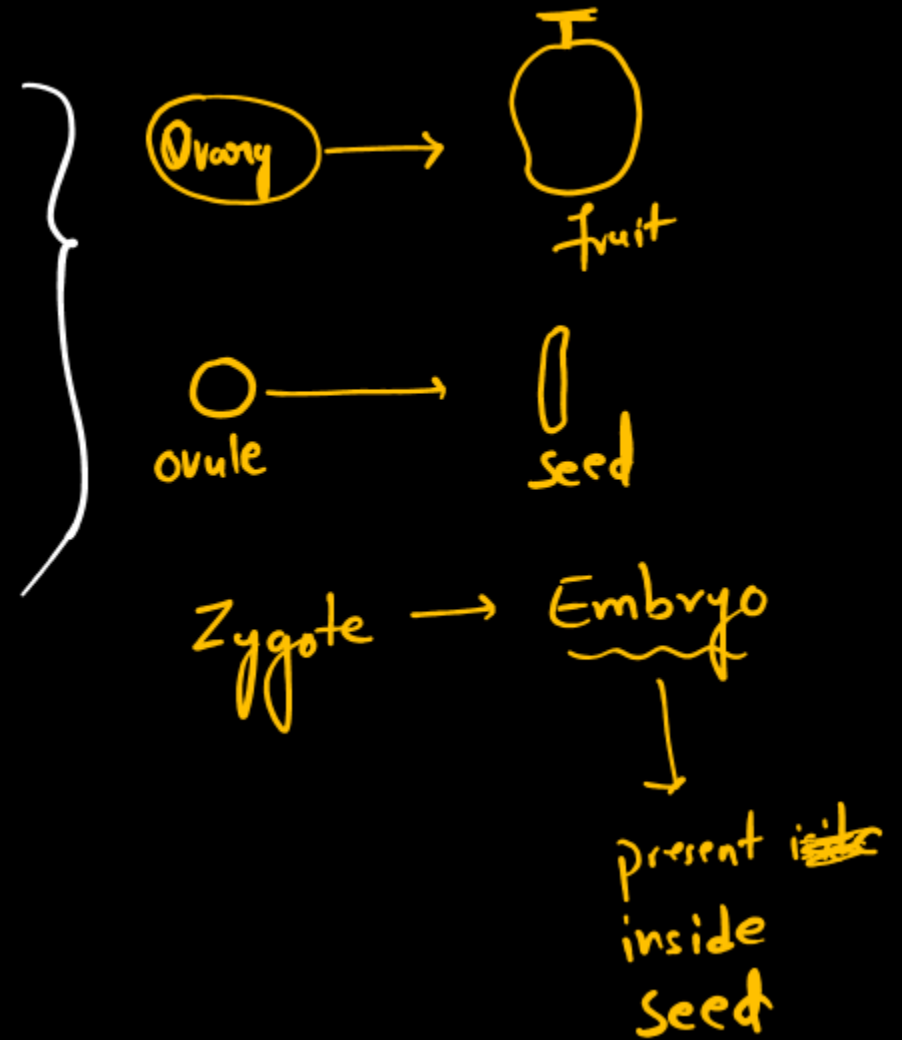 Ovary
fruit
ovule
seed
Zygote → Embryo
present
inside
seed